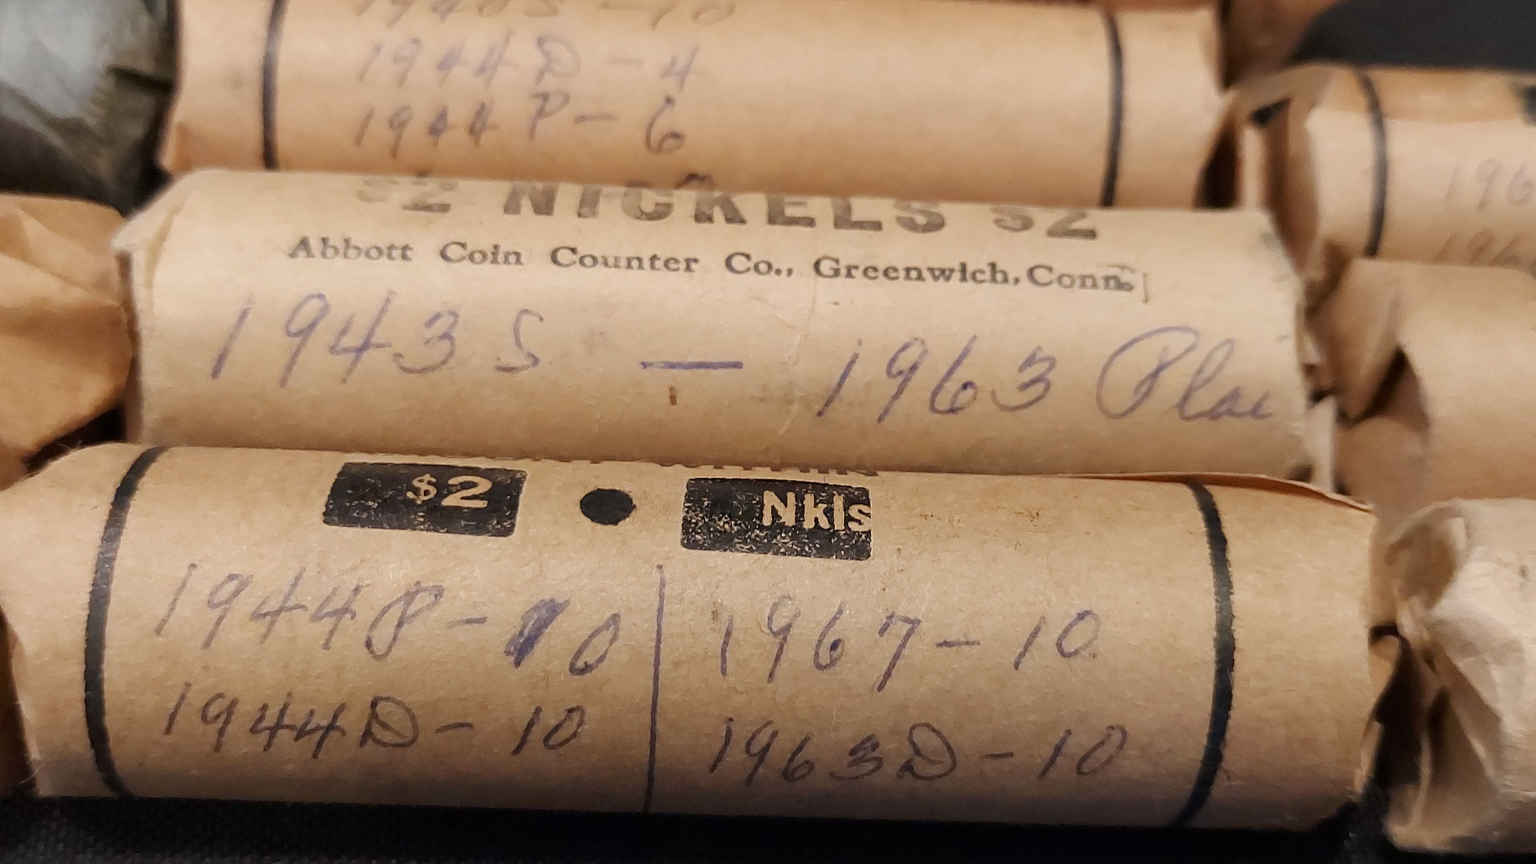 1944 D - 4
1944 P - 6
$2 NICKELS $2
Abbott Coin Counter Co., Greenwich, Conn.
1943 S — 1963 Plai
$2 • Nkls
1944 P - 10
1944 D - 10
1967 - 10
1963 D - 10
196
196